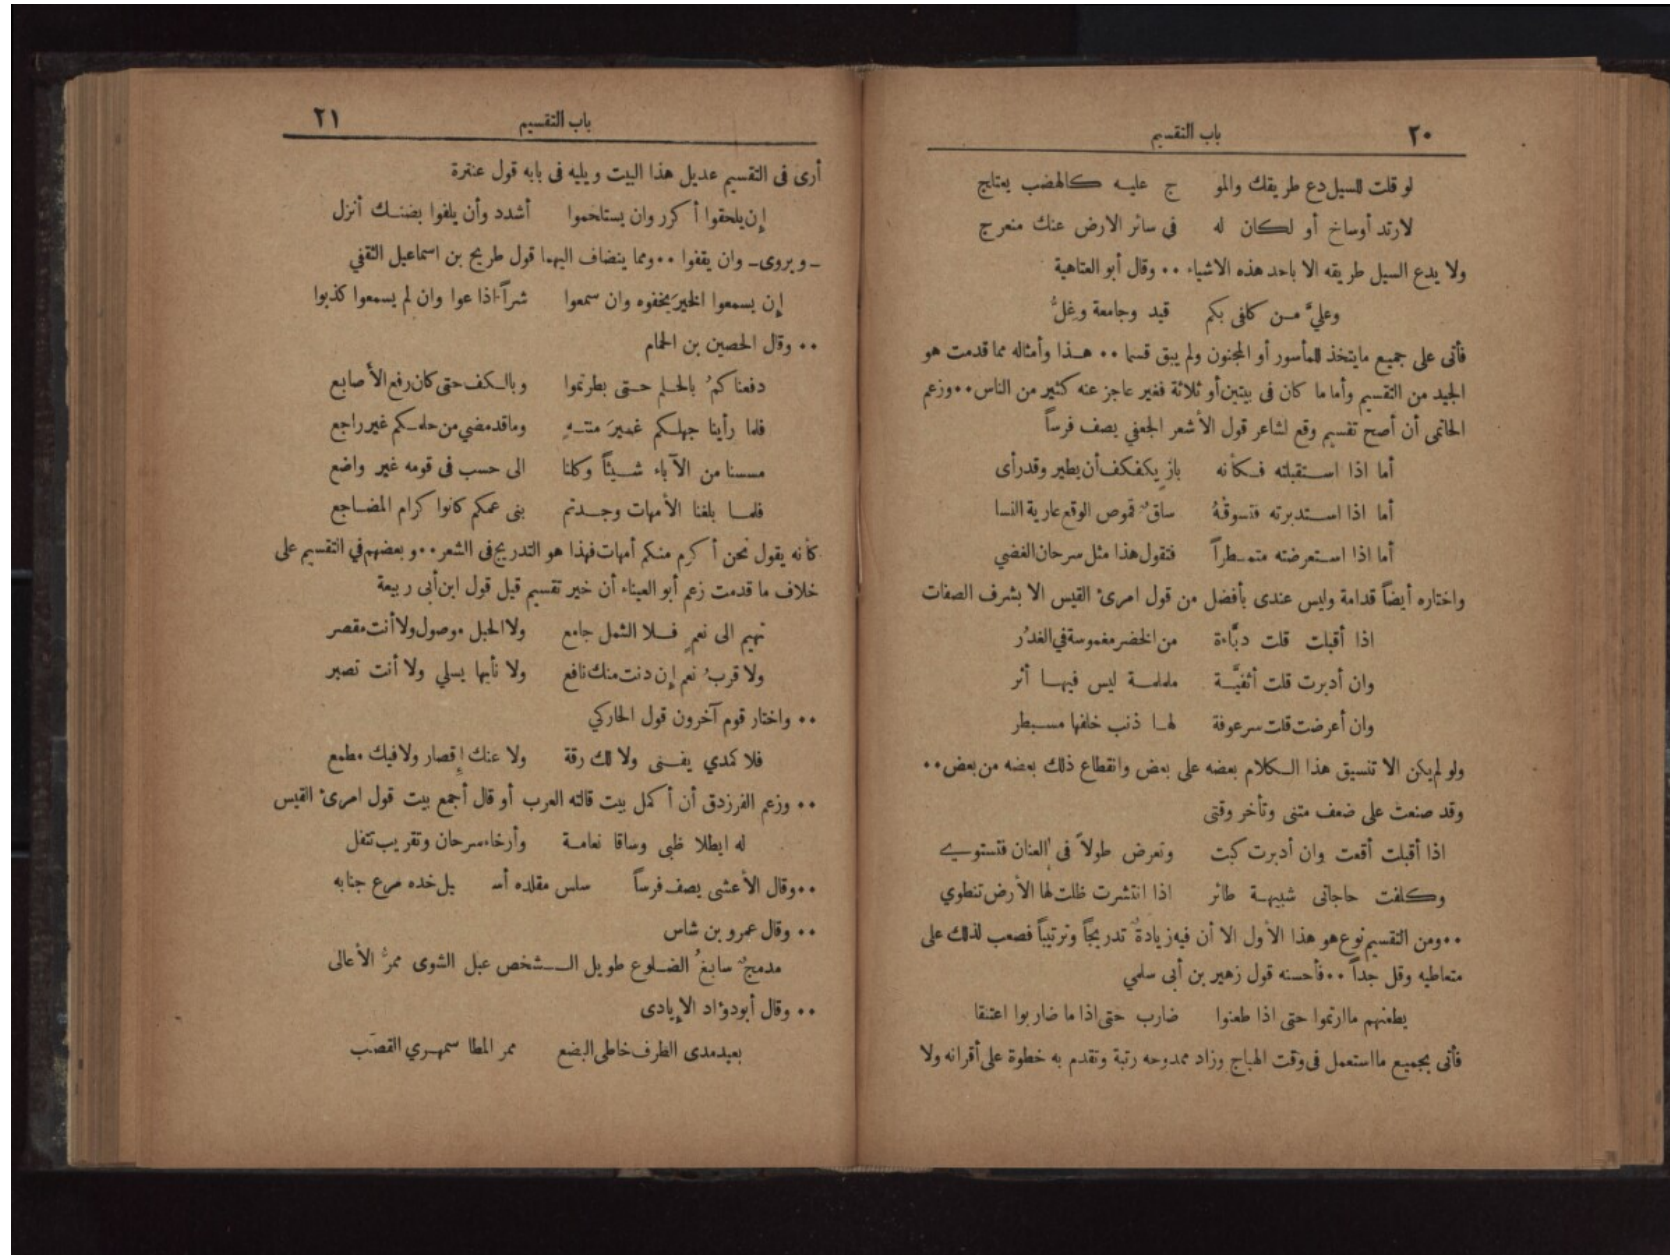 ٢٠
باب التقسيم
لو قلت للسيل دع طريقك والمو ج عليه كالهضب يعتلج
لارتد أوساخ أو لكان له في سائر الارض عنك منعرج
ولا يدع السيل طريقه الا باحد هذه الاشياء ٠٠ وقال أبو العتاهية
وعليَّ من كلفى بكم قيد وجامعة وغلُّ
فأتى على جميع مايتخذ للمأسور أو المجنون ولم يبق قسما ٠٠ هذا وأمثاله مما قدمت هو
الجيد من التقسيم وأما ما كان فى بيتين أو ثلاثة فغير عاجز عنه كثير من الناس ٠٠ وزعم
الحاتمى أن أصح تقسيم وقع لشاعر قول الأشعر الجعفي يصف فرساً
أما اذا استقبلته فكأنه بازٍ يكفكف أن يطير وقد رأى
أما اذا استدبرته فتسوقهُ ساقٌ قموص الوقع عارية النسا
أما اذا استعرضته متمطراً فتقول هذا مثل سرحان الغضي
واختاره أيضاً قدامة وليس عندى بأفضل من قول امرئ القيس الا بشرف الصفات
اذا أقبلت قلت دبَّاءة من الخضر مغموسة في الغدُر
وان أدبرت قلت أثفيَّة ململمة ليس فيها أثر
وان أعرضت قلت سرعوفة لها ذنب خلفها مسبطر
ولو لم يكن الا تنسيق هذا الكلام بعضه على بعض وانقطاع ذلك بعضه من بعض ٠٠
وقد صنعت على ضعف متنى وتأخر وقتى
اذا أقبلت أقعت وان أدبرت كبت وتعرض طولاً فى العنان فتستوي
وكلفت حاجاتى شبيهة طائر اذا انتشرت ظلت لها الأرض تنطوي
٠٠ ومن التقسيم نوع هو هذا الأول الا أن فيه زيادةً تدريجاً وترتيباً فصعب لذلك على
متعاطيه وقل جداً ٠٠ فأحسنه قول زهير بن أبى سلمي
يطعنهم ما ارتموا حتى اذا طعنوا ضارب حتى اذا ما ضاربوا اعتنقا
فأتى بجميع ما استعمل فى وقت الهياج وزاد ممدوحه رتبة وتقدم به خطوة على أقرانه ولا
باب التقسيم
٢١
أرى فى التقسيم عديل هذا البيت ويليه فى بابه قول عنترة
إن يلحقوا أكرر وان يستلحموا أشدد وأن يلفوا بضنك أنزل
ـ ويروى ـ وان يقفوا ٠٠ ومما ينضاف اليها قول طريح بن اسماعيل الثقفي
إن يسمعوا الخيرَ يخفوه وان سمعوا شراً اذاعوا وان لم يسمعوا كذبوا
٠٠ وقال الحصين بن الحمام
دفعناكمُ بالحلم حتى بطرتموا وبالكف حتى كان رفع الأصابع
فلما رأينا جهلكم غيرَ منتهٍ وما قد مضي من حلمكم غير راجع
مسسنا من الآباء شيئاً وكلنا الى حسب فى قومه غير واضع
فلما بلغنا الأمهات وجدتم بنى عمكم كانوا كرام المضاجع
كأنه يقول نحن أكرم منكم أمهات فهذا هو التدريج فى الشعر ٠٠ وبعضهم في التقسيم على
خلاف ما قدمت زعم أبو العيناء أن خير تقسيم قيل قول ابن أبى ربيعة
تهيم الى نعمٍ فلا الشمل جامع ولا الحبل موصول ولا أنت مقصر
ولا قربُ نعم إن دنت منك نافع ولا نأيها يسلي ولا أنت تصبر
٠٠ واختار قوم آخرون قول الحاركي
فلا كمدي يفنى ولا لك رقة ولا عنك إقصار ولا فيك مطمع
٠٠ وزعم الفرزدق أن أكمل بيت قالته العرب أو قال أجمع بيت قول امرئ القيس
له ايطلا ظبى وساقا نعامة وأرخاء سرحان وتقريب تتفل
٠٠ وقال الأعشى يصف فرساً سلس مقلده أسـ يل خده مرع جنابه
٠٠ وقال عمرو بن شاس
مدمجٌ سابغُ الضلوع طويل الشخص عبل الشوى ممرُّ الأعالى
٠٠ وقال أبو دؤاد الإيادى
بعيد مدى الطرف خاظى البضع ممر المطا سمهري القصَب